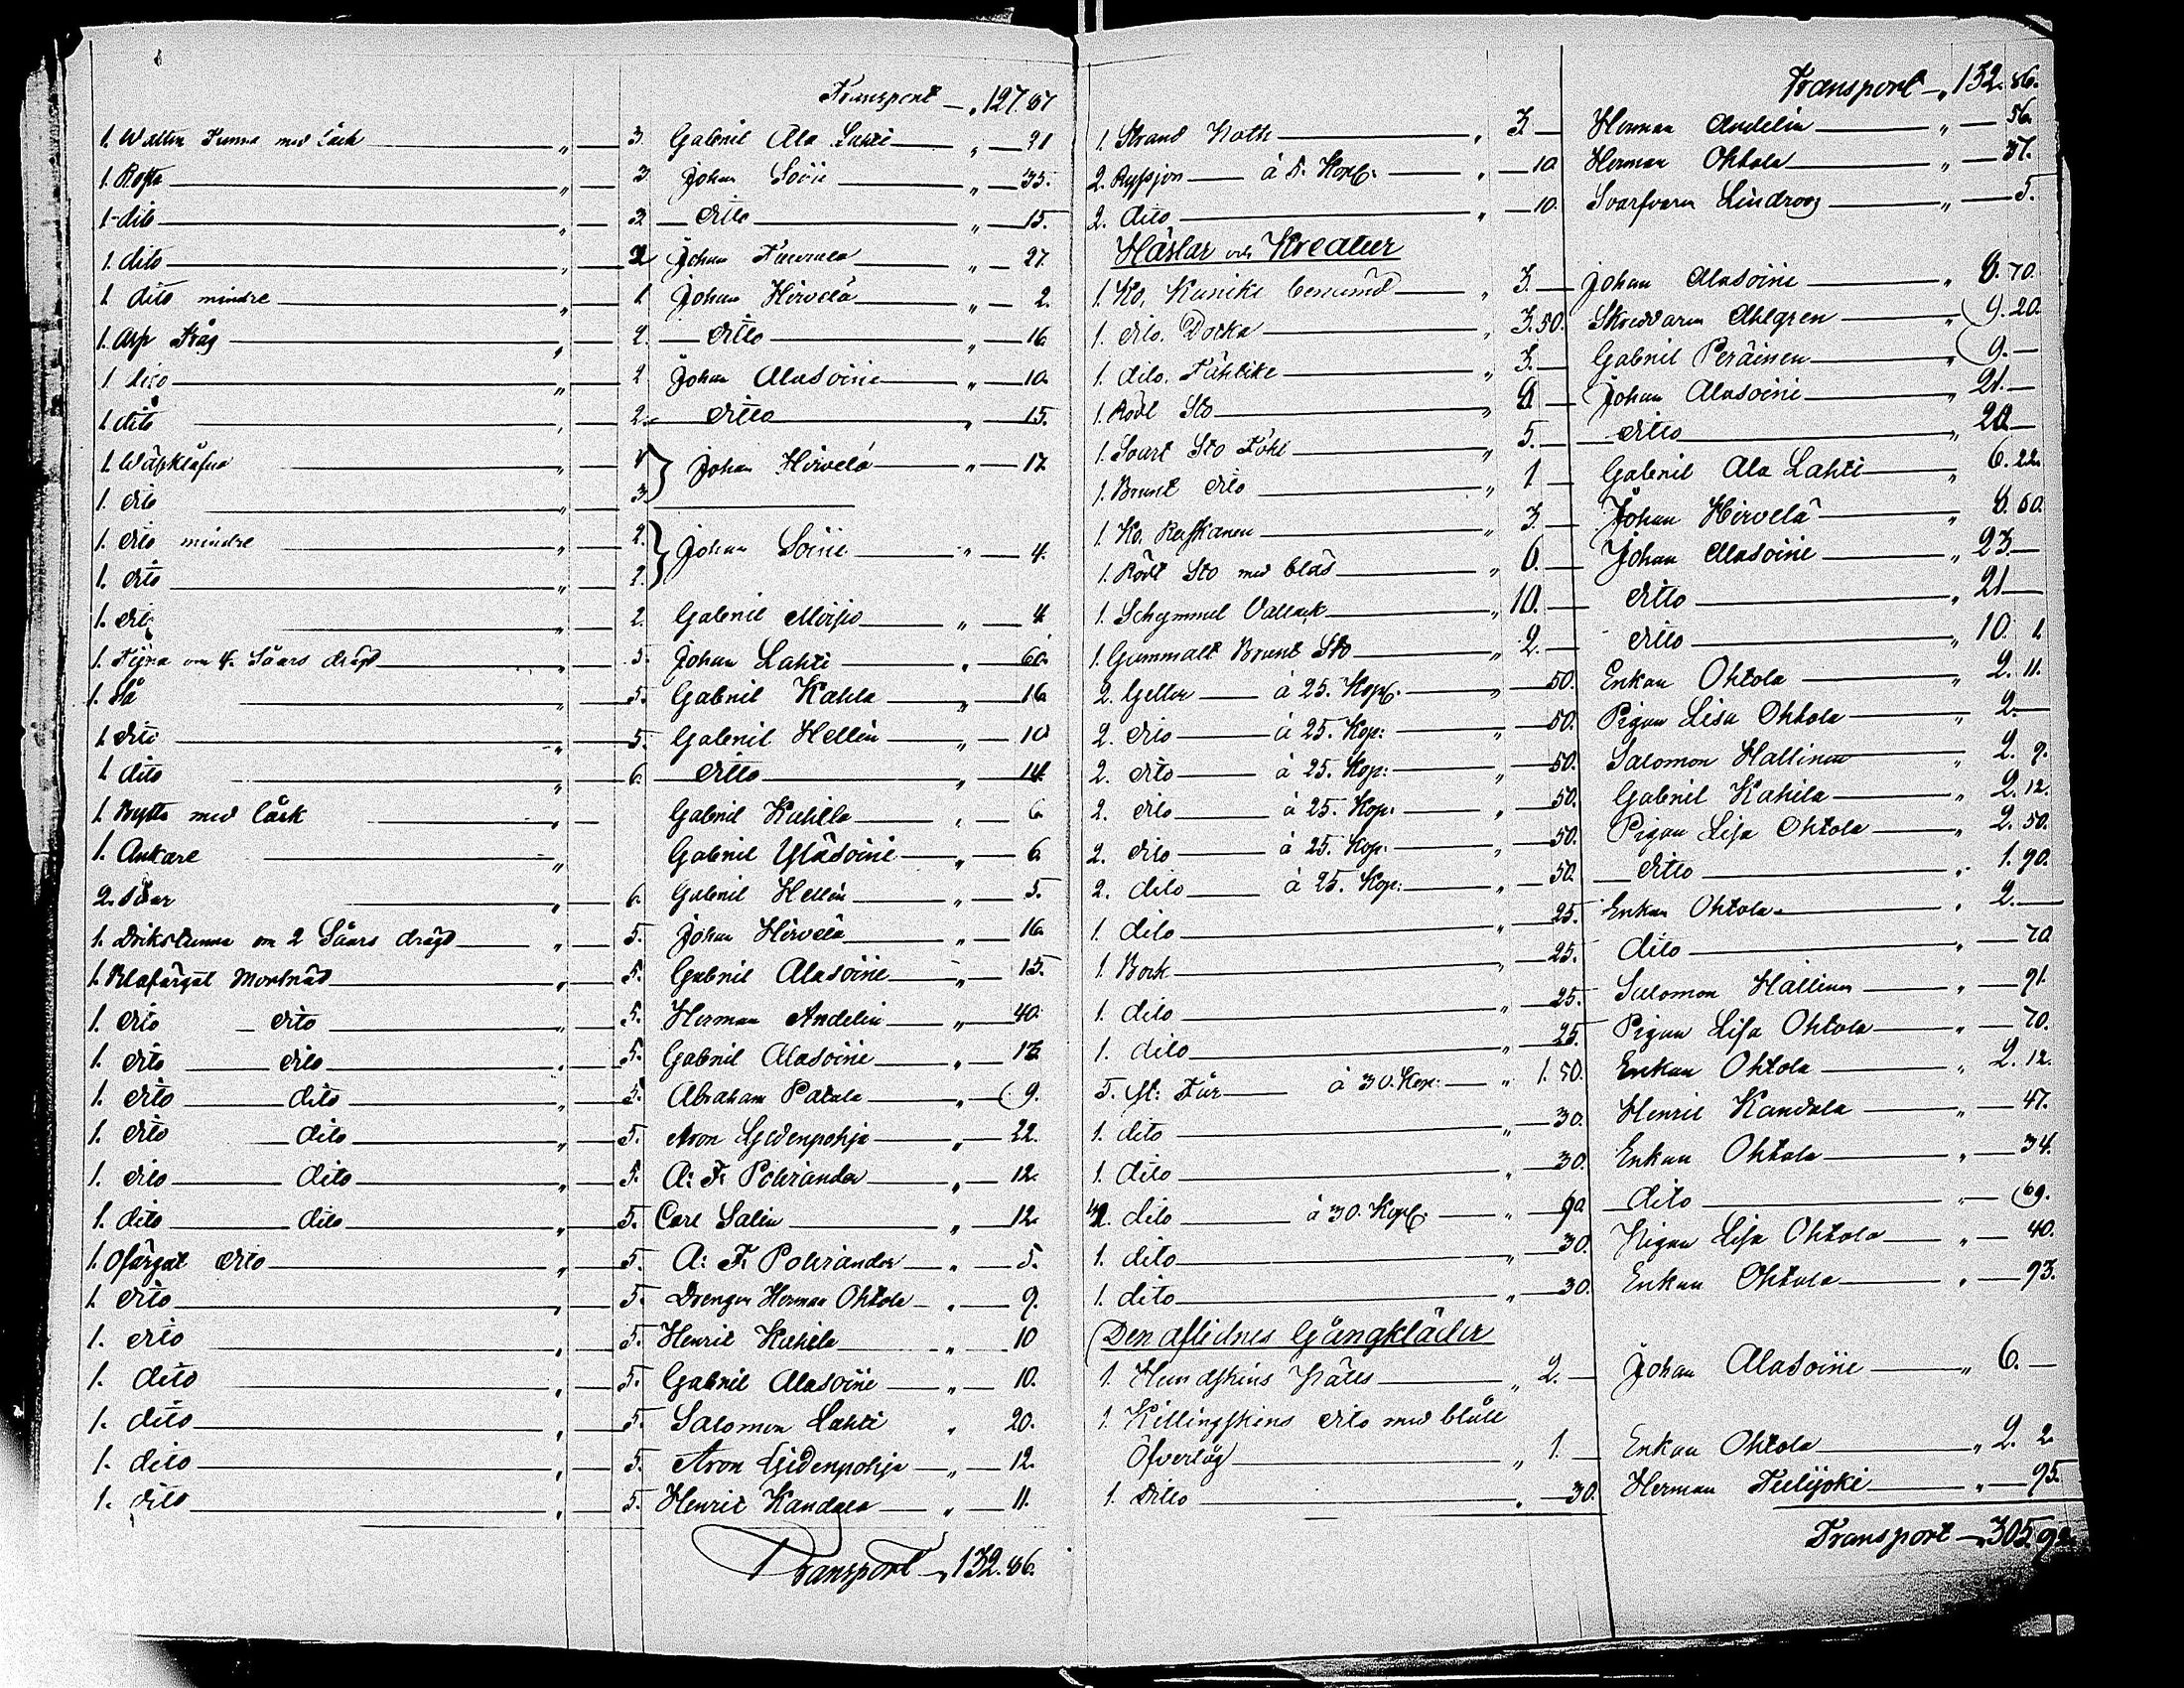 Transport — „ 127 87
1. Watten Tunna med låck „ — 3. Gabriel Ala Lahti — „ — 21
1. Bytta — „ — 3 Johan Soini — „ — 35.
1. dito — „ — 3. — ditto — „ — 15.
1. dito — „ — 2 Johan — „ — 27.
1. dito mindre — „ — 1 Johan Hirvelä — „ — 2.
1. Asp Tråg — „ — 2. — ditto — „ — 16
1. dito — „ — 2 Johan Alasoini — „ — 10.
1. dito — „ — 2. — ditto — „ — 15.
1. — „ — 4 } Johan Hirvelä — „ — 17
1. dito — „ — 3 }
1. dito mindre — „ — 2. } Johan Soini — „ — 4.
1. dito — „ — 2. }
1. dito — „ — 2. Gabriel Moisio — „ — 4
1. Tijna om 4. Såars drägt — „ — 5. Johan Lahti — „ — 60.
1. Så — „ — 5. Gabriel Kahila — „ — 16
1. dito — „ — 5. Gabriel Hellin — „ — 10
1. dito — „ — 6. — ditto — „ — 14.
1. Bytta med låck — „ — Gabriel Kahila — „ — 6
1. Ankare — „ Gabriel Yläsoini — „ — 6.
2. Såar — „ — 6. Gabriel Hellin — „ — 5.
1. Drikstunna om 2 Såars drägt — „ — 5. Johan Hirvelä — „ — 16
1. Blåfärgat Mortnät — „ — 5. Gabriel Alasoini — „ — 15.
1. dito — dito — „ — 5. Herman Andelin — „ — 40.
1. dito — dito — „ — 5. Gabriel Alasoini — „ — 13.
1. dito — dito — „ — 5. Abraham Patala — „ — 9.
1. dito — dito — „ — 5. Aron Lydenpohja — „ — 22.
1. dito — dito — „ — 5. A: F. Polviander — „ — 12.
1. dito — dito — „ — 5. Carl Salin — „ — 12.
1. Ofärgat dito — „ — 5. A: F. Polviander — „ — 5.
1. dito — „ — 5. Drengen Herman Ohtola — „ — 9.
1. dito — „ — 5. Henric Kahila — „ — 10
1. dito — „ — 5. Gabriel Alasoini — „ — 10.
1. dito — „ — 5. Salomon Lahti „ 20.
1. dito — „ — 5. Aron Lydenpohja — „ — 12.
1. dito — „ — 5. Henric Kandola — „ — 11.
Transport — „ 132. 86.
Transport — „ 132. 86.
1. Strand Noth — „ 3. — Herman Andelin — „ — 56.
2. Ryssjor — à 5. Kop. — „ — 10. Herman Ohtola — „ — 37.
2. dito — „ — 10. Svarfvaren Lindroos — „ — 5.
Hästar och Kreatur
1. Ko, Kuniki benämd — „ 3. — Johan Alasoini — „ 8. 70.
1. dito. Dorka — „ 3. 50. Skreddaren Ahlgren — „ 9. 20.
1. dito. Tähtike — „ 3. — Gabriel Peräinen — „ 9. —
1. Rödt Sto — „ 8 — Johan Alasoini — „ 21. —
1. Svart Sto Föhl — „ 5. — ditto — „ 20 —
1. Brunt dito — „ 1 — Gabriel Ala Lahti — „ 6. 22.
1. Ko. — „ 3. — Johan Hirvelä — „ 8. 60.
1. Rödt Sto med bläs — „ 6. — Johan Alasoini — „ 23. —
1. Schymmel Vallack — „ 10. — ditto — „ 21 —
1. Gammalt Brunt Sto — „ 2. — ditto — „ 10. 1.
2. Getter — à 25. Kop. — „ — 50. Enkan Ohtola — „ 2. 11.
2. dito — à 25. Kop: — „ — 50. Pigan Lisa Ohtola — „ 2. —
2. dito — à 25. Kop: — „ — 50. Salomon Hallinen — „ 2. 9.
2. dito — à 25. Kop. — „ — 50. Gabriel Kahila — „ 2. 12.
2. dito — à 25. Kop. — „ — 50. Pigan Lisa Ohtola — „ 2. 50.
2. dito — à 25. Kop: — „ — 50. — ditto — „ 1. 90.
1. dito — „ — 25. Enkan Ohtola — „ 2. —
1. Bock — „ — 25. dito — „ — 70
1. dito — „ — 25. Salomon Hallinen — „ — 91.
1. dito — „ — 25. Pigan Lisa Ohtola — „ — 70.
5. st: Får — à 30. Kop: — „ 1. 50. Enkan Ohtola — „ 2. 12.
1. dito — „ — 30. Henric Kandola — „ — 47.
1. dito — „ — 30. Enkan Ohtola — „ — 34.
2. dito — à 30. Kop. — „ — 90 — dito — „ — 69.
1. dito — „ — 30. Pigan Lisa Ohtola — „ — 40.
1. dito — „ — 30. Enkan Ohtola — „ — 93.
Den aflidnes Gångkläder
1. Hundskins Päls — „ 2. — Johan Alasoini — „ 6. —
1. Killingskins dito med blått
Öfvertög — „ 1. — Enkan Ohtola — „ 2. 2
1. Ditto — „ — 30. Herman — „ — 95.
Transport — „ 305.